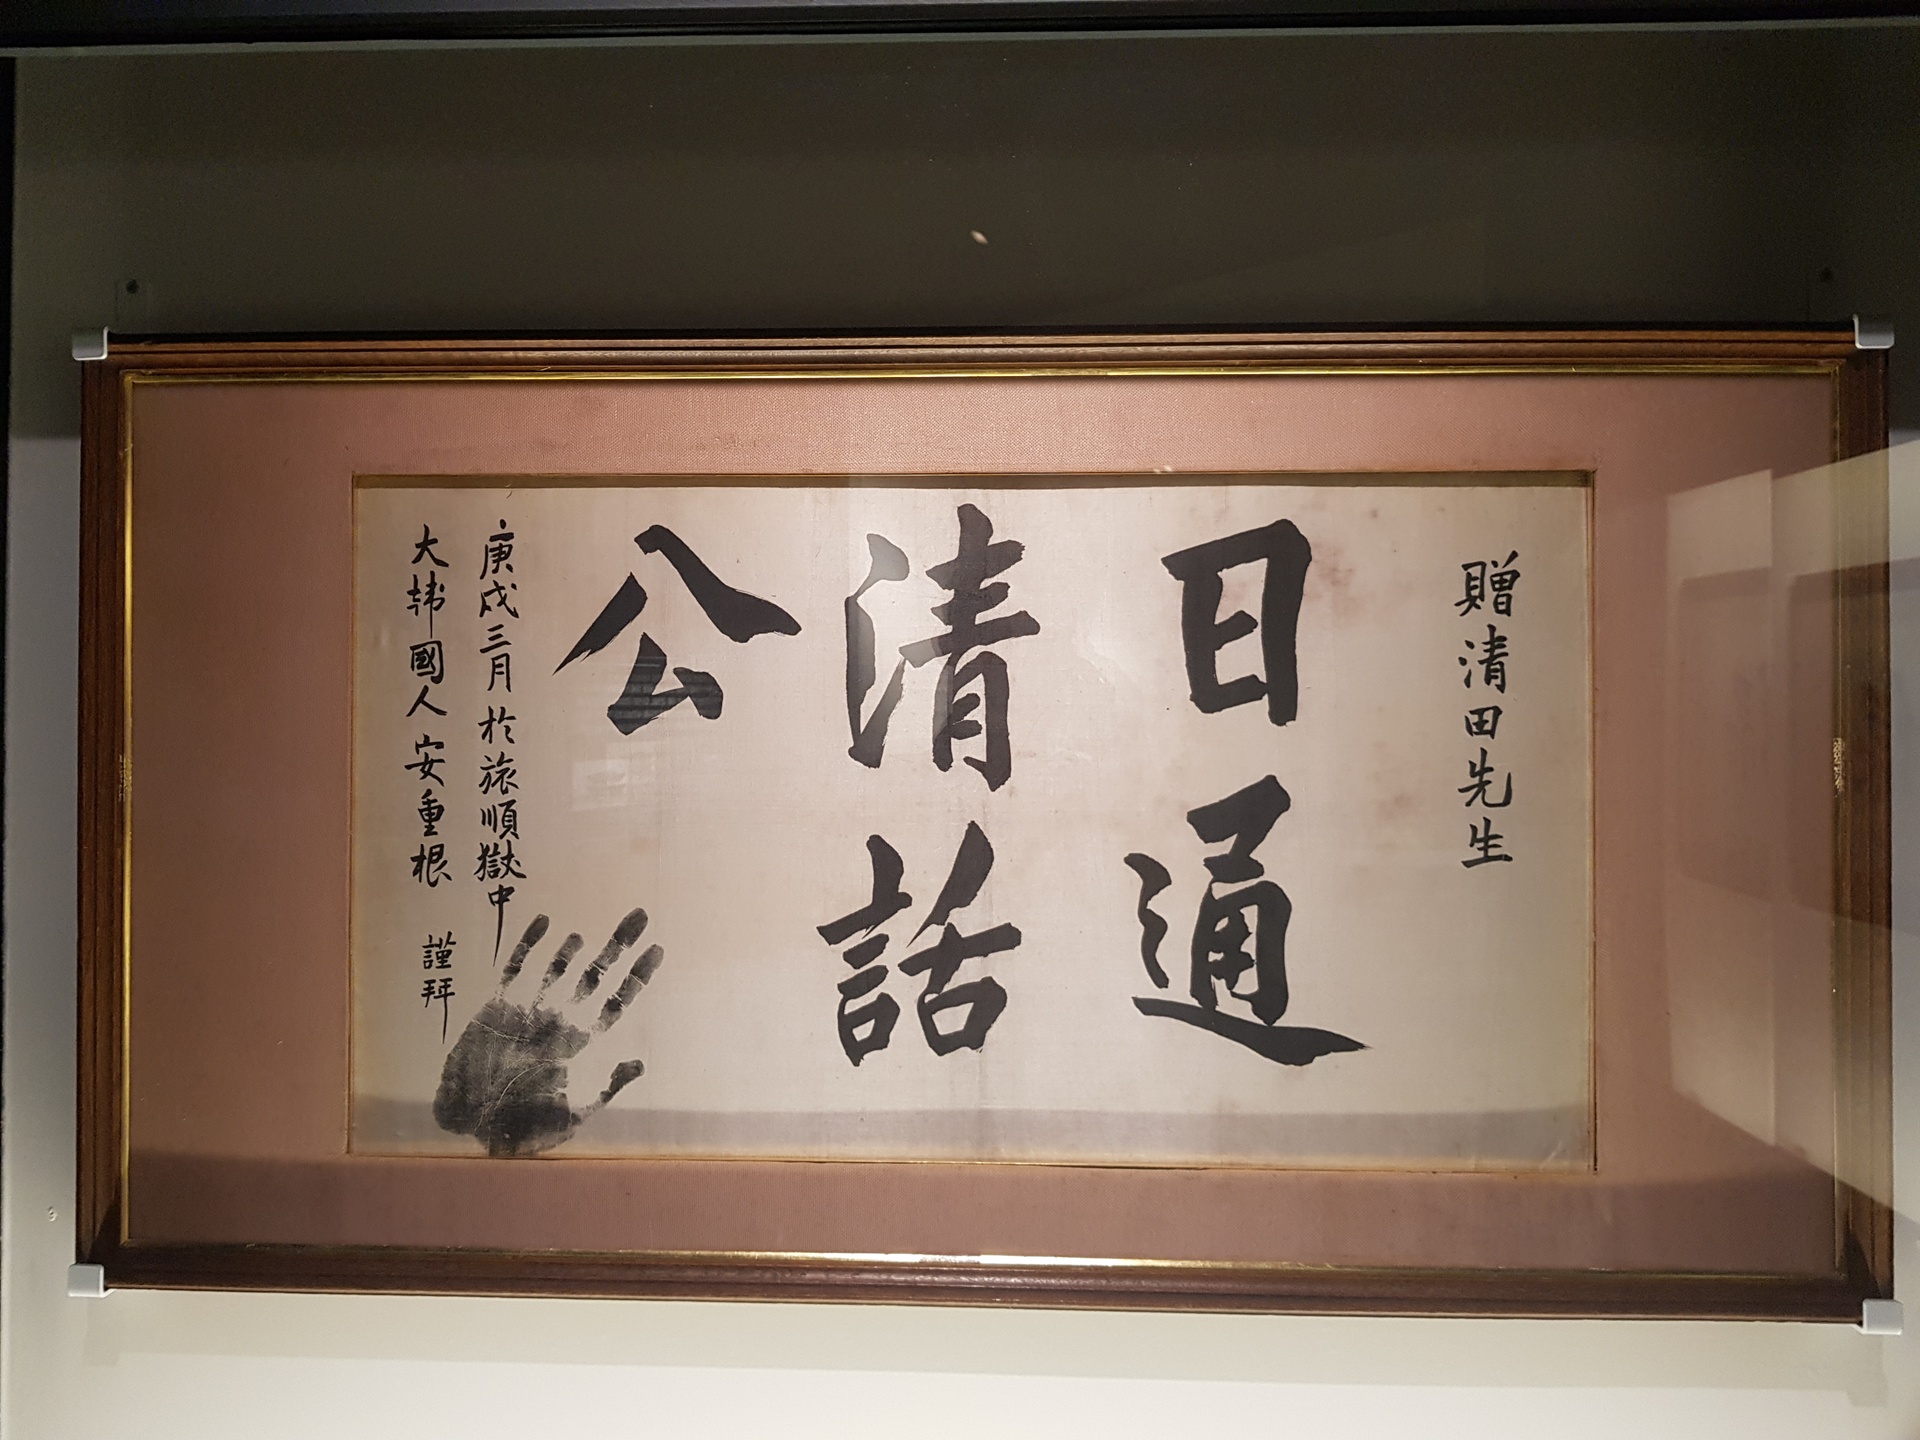 贈清田先生
日通
清話
公
庚戌三月 於旅順獄中
大韩國人 安重根 謹拜